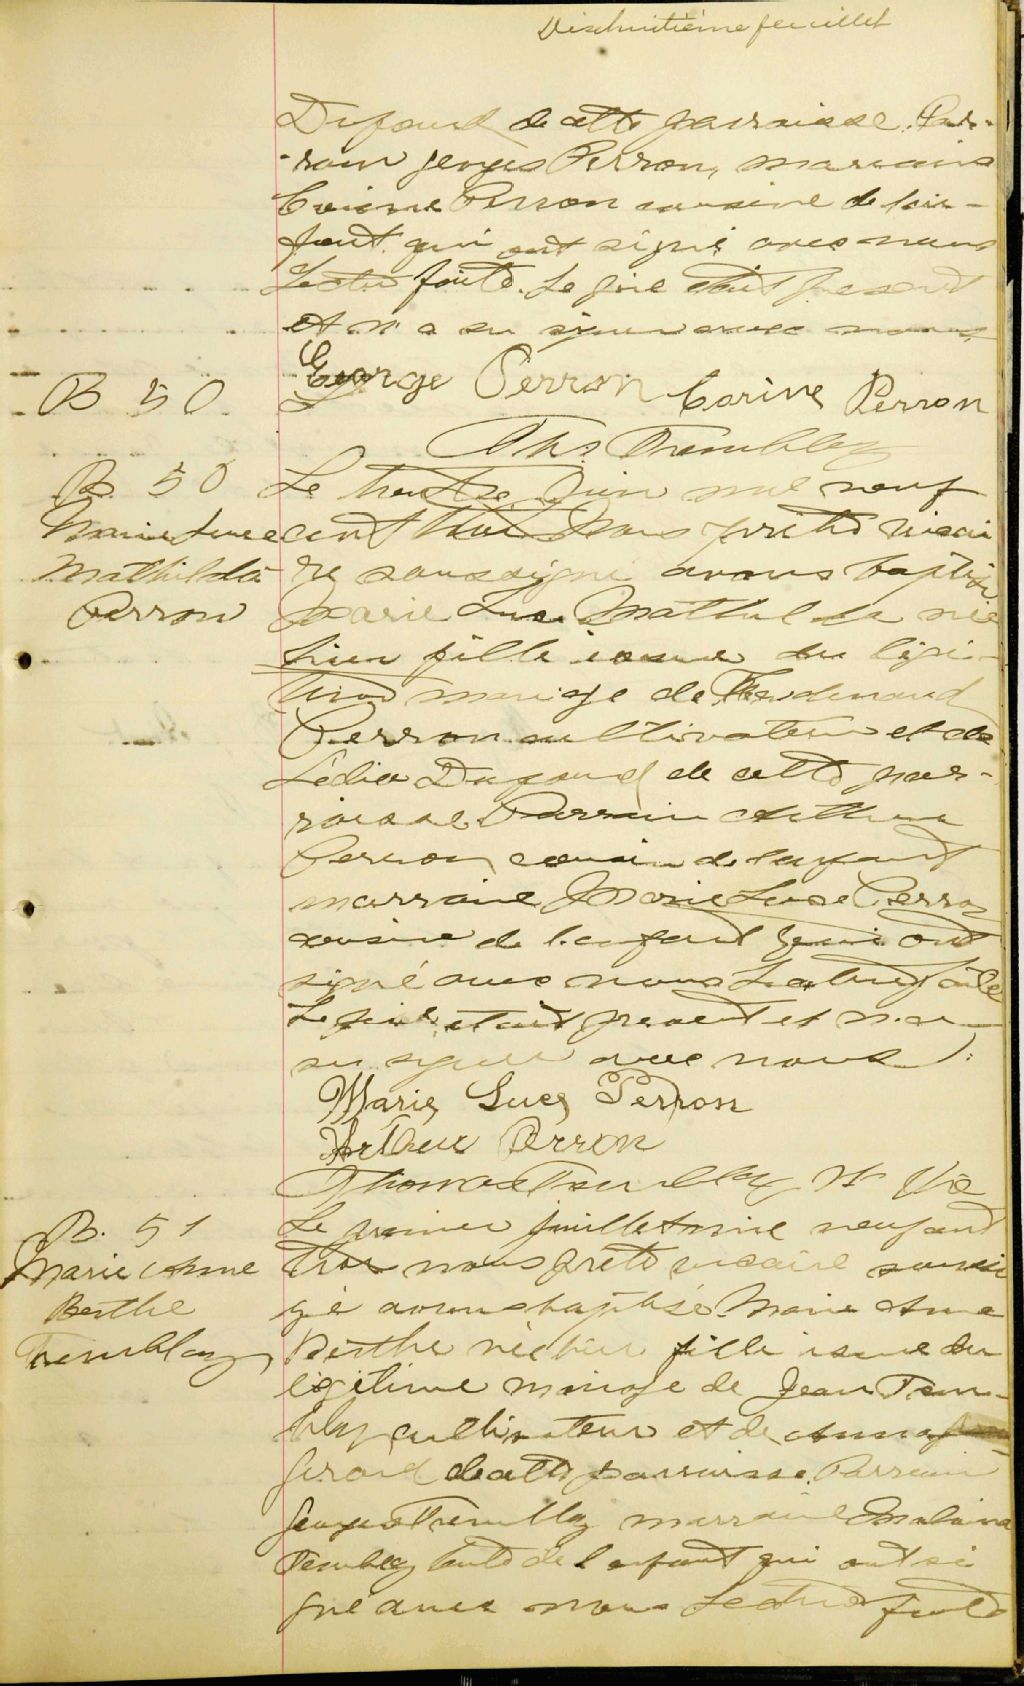 Dixhuitième feuillet
Dufour de cette parroisse. Par-
rain Georges Perron, marraine
Corinne Perron cousine de l'en-
fant qui ont signé avec nous
Lecture faite. Le père était présent
et n'a su signer avec nous
George Perron Corine Perron
B 50
Ths. Tremblay
B. 50
Marie Luce
Mathilda
Perron
Le trente Juin mil neuf
cent trois Nous prêtre vicai
re soussigné avons baptisé
Marie Luce Mathilda née
hier fille issue du légi-
time mariage de Ferdinand
Perron cultivateur et de
Lédia Dufour de cette par-
roisse Parrain Arthur
Perron, cousin de l'enfant
marraine Marie Luce Perron
cousine de l'enfant qui ont
signé avec nous Lecture faite
Le père était présent et n'a
su signer avec nous.
Marie Luce Perron
Arthur Perron
Thomas Tremblay Ptr Vic
B. 51
Marie Anne
Berthe
Tremblay
Le premier juillet mil neuf cent
trois nous prêtre vicaire soussi
gné avons baptisé Marie Anne
Berthe née hier fille issue du
légitime mariage de Jean Trem-
blay cultivateur et de Anna
Girard de cette parroisse. Parrain
Georges Tremblay marraine Malvina
Tremblay tante de l'enfant qui ont si
gné avec nous Lecture faite